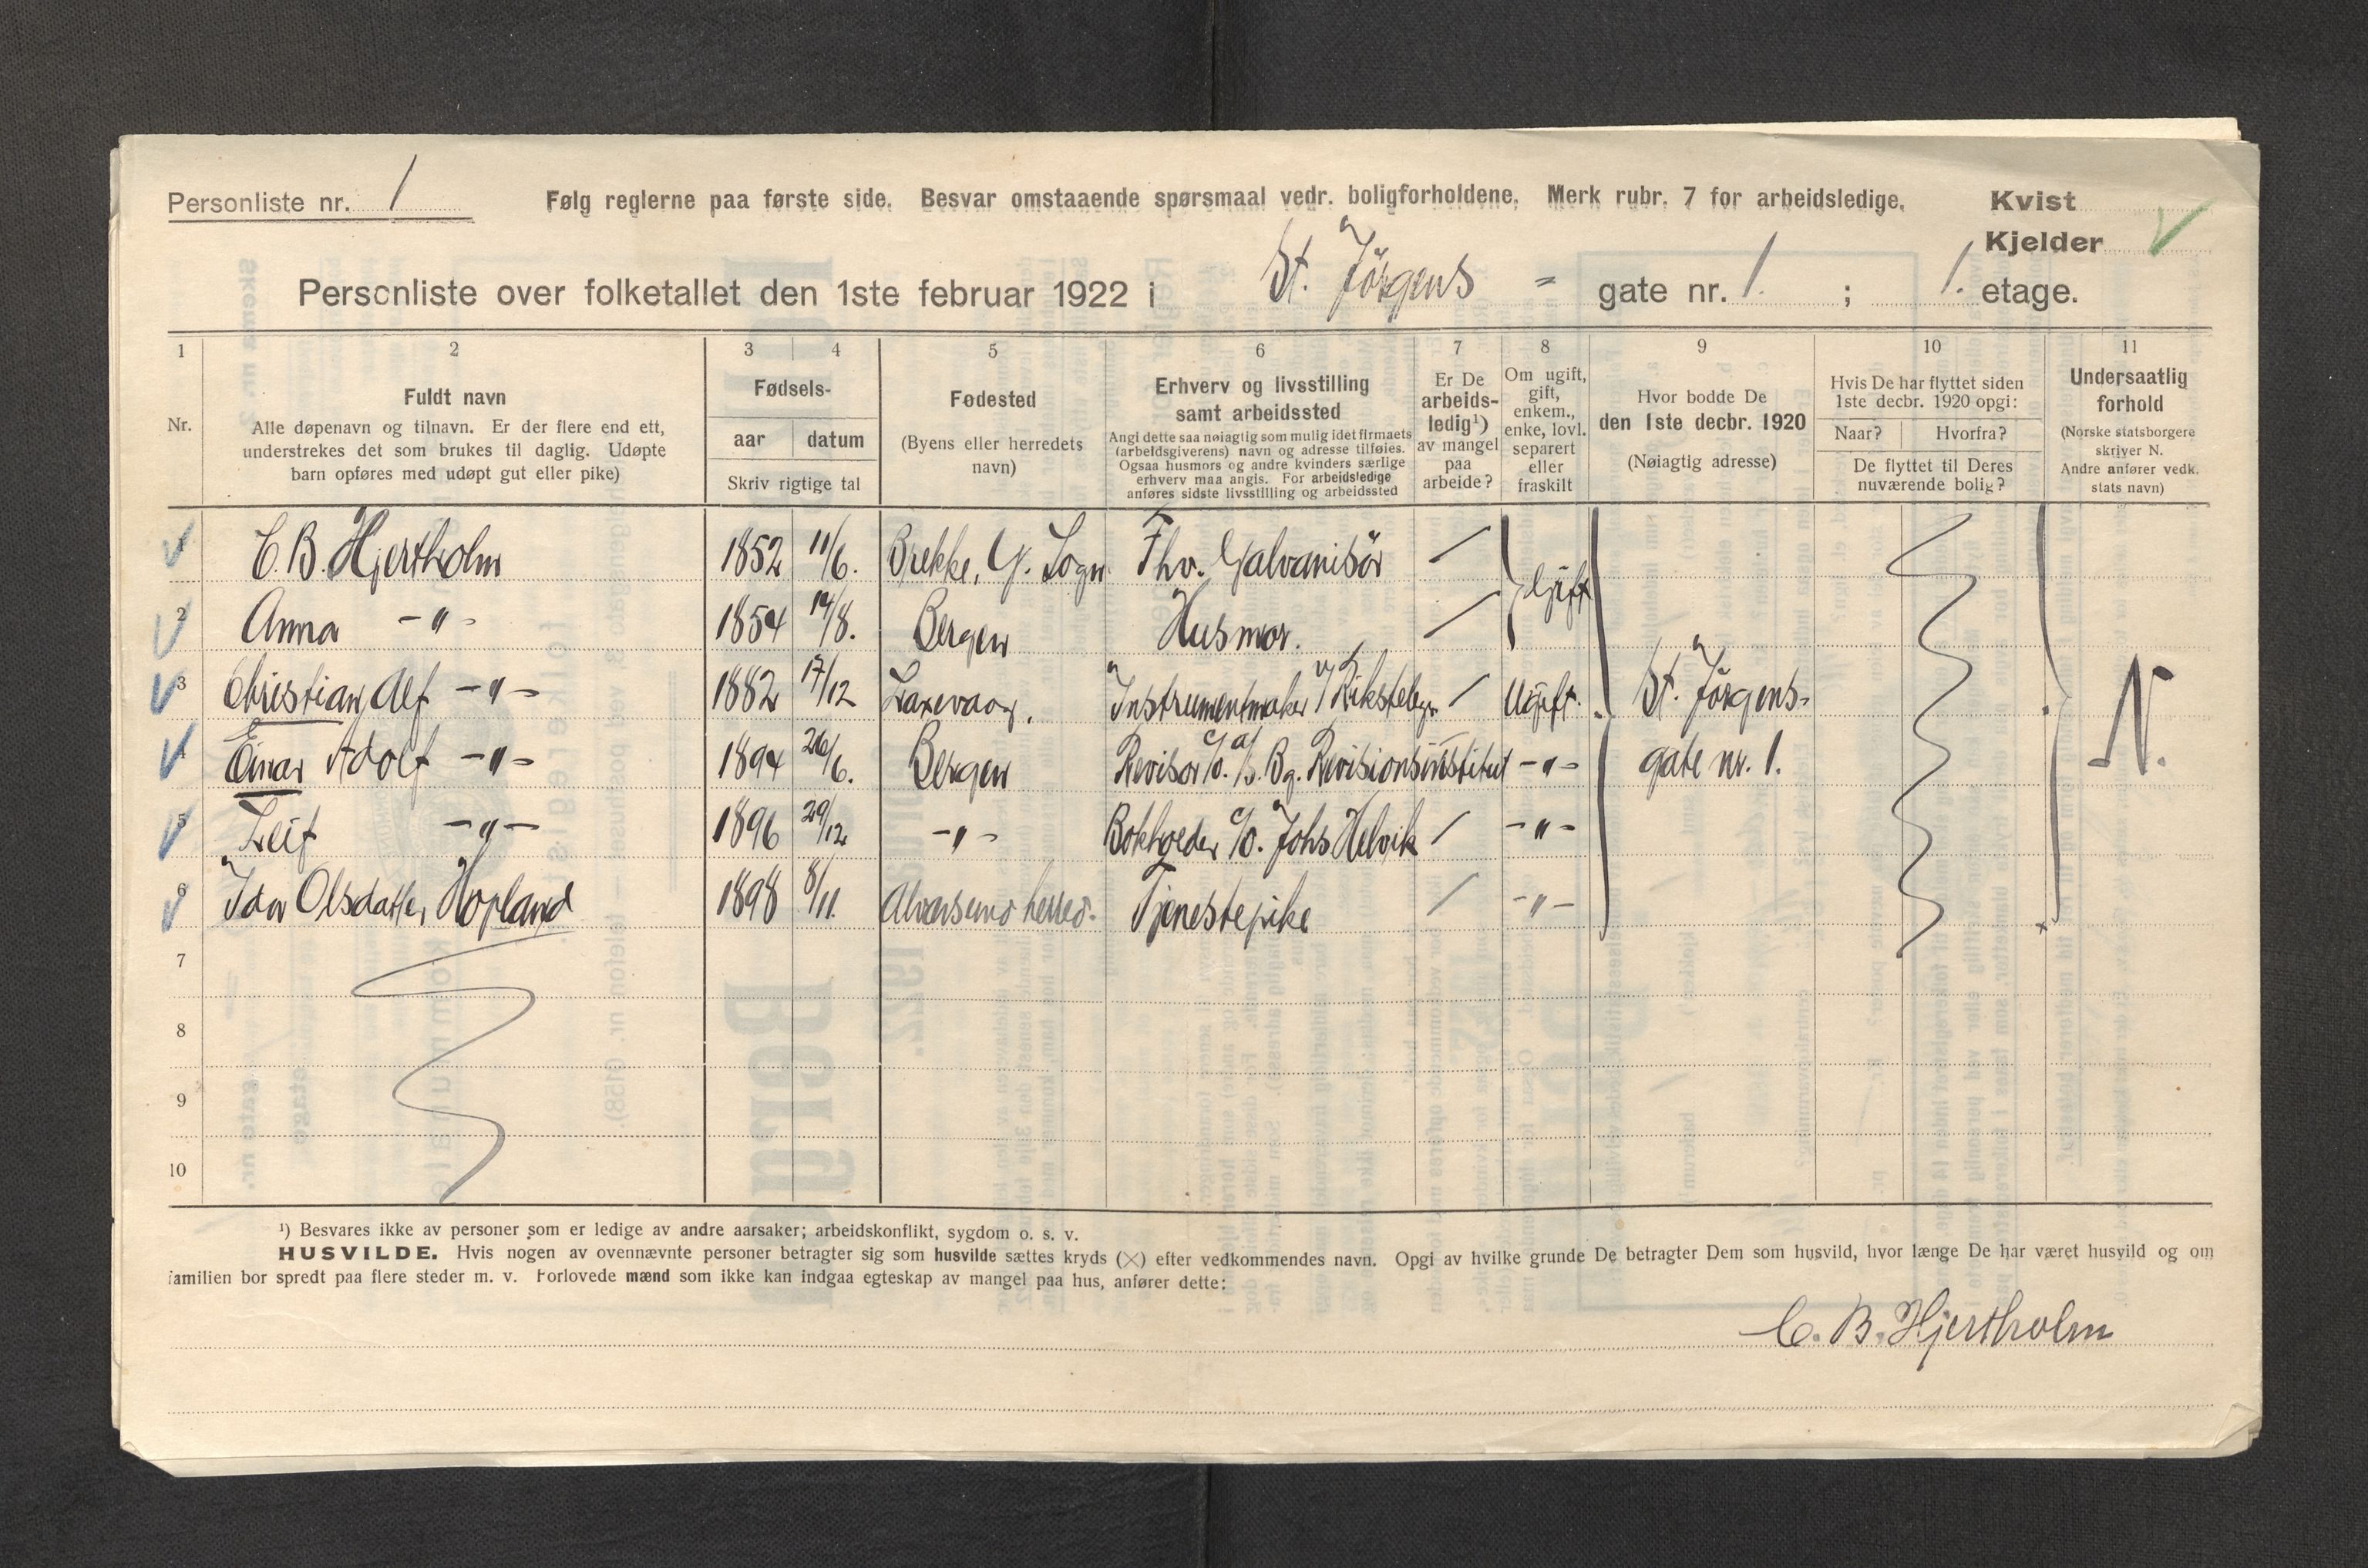 Personliste nr. 1 Følg reglerne paa første side. Besvar omstaaende spørsmaal vedr. boligforholdene. Merk rubr. 7 for arbeidsledige. Kvist
Kjelder
Personliste over folketallet den 1ste februar 1922 i St. Jörgens - gate nr. 1 ; 1. etage.
1 2 3 4 5 6 7 8 9 10 11
Nr.
Fuldt navn
Alle døpenavn og tilnavn. Er der flere end ett,
understrekes det som brukes til daglig. Udøpte
barn opføres med udøpt gut eller pike)
Fødsels-
aar datum
Skriv rigtige tal
Fødested
(Byens eller herredets
navn)
Erhverv og livsstilling
samt arbeidssted
Angi dette saa nøiagtig som mulig idet firmaets
(arbeidsgiverens) navn og adresse tilføies.
Ogsaa husmors og andre kvinders særlige
erhverv maa angis. For arbeidsledige
anføres sidste livsstilling og arbeidssted
Er De
arbeids-
ledig¹)
av mangel
paa
arbeide?
Om ugift,
gift,
enkem.,
enke, lovl.
separert
eller
fraskilt
Hvor bodde De
den 1ste decbr. 1920
(Nøiagtig adresse)
Hvis De har flyttet siden
1ste decbr. 1920 opgi:
Naar? Hvorfra?
De flyttet til Deres
nuværende bolig?
Undersaatlig
forhold
(Norske statsborgere
skriver N.
Andre anfører vedk.
stats navn)
C. B. Hjertholm 1852 11/6. Brekke, Y. Sogn Fhv. Galvanisör / Gift
2 Anna -"- 1854 14/8. Bergen Husmor. /
3 Christian Alf -"- 1882 17/12 Laxevaag. Instrumentmaker v/ Rikstelegr. / Ugift. St. Jörgens- N.
4 Einar Adolf -"- 1894 26/6. Bergen Revisor c/o. A/S. Bg. Revisionsinstitut -"- gate nr. 1.
5 Leif -"- 1896 29/12 -"- Bokholder c/o. Johs Helvik / -"-
6 Ida Olsdatter Hopland 1898 8/11. Alversund herred. Tjenestepike / -"-
7
8
9
10
¹) Besvares ikke av personer som er ledige av andre aarsaker; arbeidskonflikt, sygdom o. s. v.
HUSVILDE. Hvis nogen av ovennævnte personer betragter sig som husvilde sættes kryds (×) efter vedkommendes navn. Opgi av hvilke grunde De betragter Dem som husvild, hvor længe De har været husvild og om
familien bor spredt paa flere steder m. v. Forlovede mænd som ikke kan indgaa egteskap av mangel paa hus, anfører dette:
C. B. Hjertholm